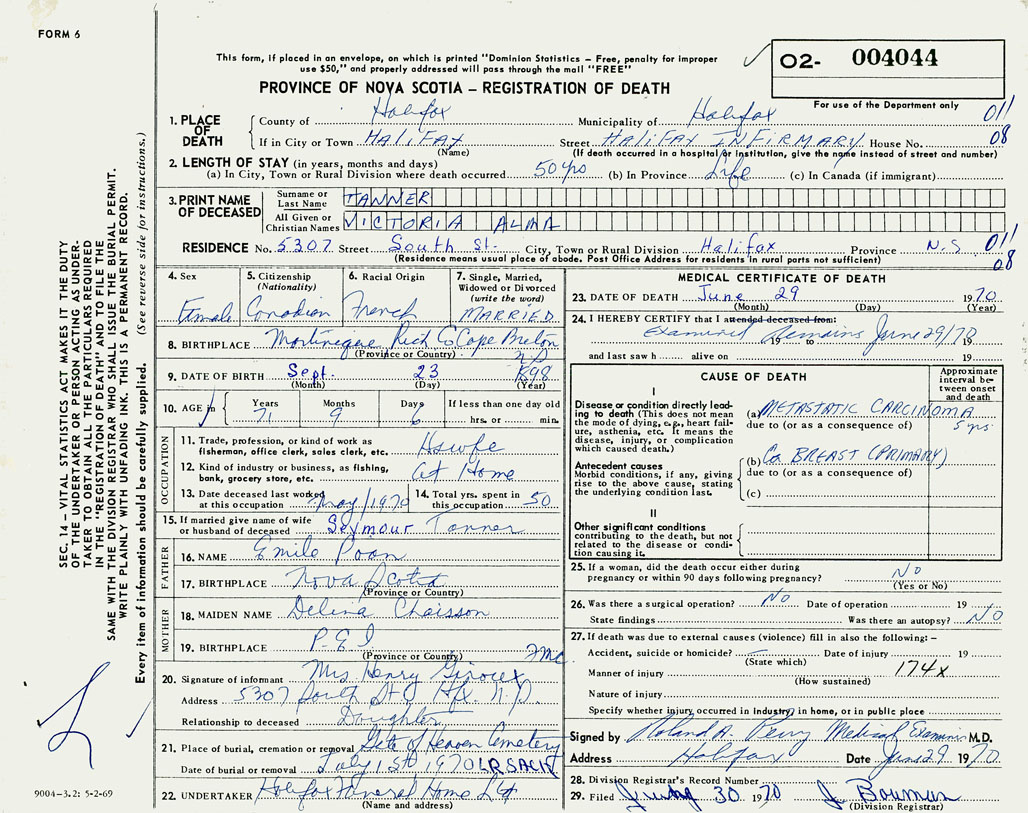 FORM 6
This form, if placed in an envelope, on which is printed "Dominion Statistics – Free, penalty for improper
use $50," and properly addressed will pass through the mail "FREE"
O2- 004044
For use of the Department only
PROVINCE OF NOVA SCOTIA – REGISTRATION OF DEATH
1. PLACE OF DEATH
County of Halifax Municipality of Halifax 011
If in City or Town HALIFAX Street HALIFAX INFIRMARY House No. 08
(Name) (If death occurred in a hospital or institution, give the name instead of street and number)
2. LENGTH OF STAY (in years, months and days)
(a) In City, Town or Rural Division where death occurred 50 yrs (b) In Province Life (c) In Canada (if immigrant)
3. PRINT NAME OF DECEASED
Surname or Last Name TANNER
All Given or Christian Names VICTORIA ALMA
RESIDENCE No. 5307 Street South St. City, Town or Rural Division Halifax Province N.S 011
(Residence means usual place of abode. Post Office Address for residents in rural parts not sufficient) 08
4. Sex Female
5. Citizenship (Nationality) Canadian
6. Racial Origin French
7. Single, Married, Widowed or Divorced (write the word) MARRIED
8. BIRTHPLACE Martinique Rich Co Cape Breton
(Province or Country)
9. DATE OF BIRTH Sept. 23 1898
(Month) (Day) (Year)
10. AGE Years 71 Months 9 Days 6 If less than one day old hrs. or min.
OCCUPATION
11. Trade, profession, or kind of work as fisherman, office clerk, sales clerk, etc. Hswfe
12. Kind of industry or business, as fishing, bank, grocery store, etc. At Home
13. Date deceased last worked at this occupation May/1970
14. Total yrs. spent in this occupation 50
15. If married give name of wife or husband of deceased Seymour Tanner
FATHER
16. NAME Emile Poon
17. BIRTHPLACE Nova Scotia
(Province or Country)
MOTHER
18. MAIDEN NAME Delina Chaisson
19. BIRTHPLACE P.E.I
(Province or Country)
20. Signature of informant Mrs Henry
Address 5307 South St Hfx. N.S.
Relationship to deceased Daughter
21. Place of burial, cremation or removal Gate of Heaven Cemetery
Date of burial or removal July 1st 1970 LR SACK
22. UNDERTAKER Halifax Funeral Home Ltd
(Name and address)
MEDICAL CERTIFICATE OF DEATH
23. DATE OF DEATH June 29 1970
(Month) (Day) (Year)
24. I HEREBY CERTIFY that I attended deceased from:
Examined Remains June 29/70
19 to 19
and last saw h alive on 19
CAUSE OF DEATH
Approximate interval between onset and death
I
Disease or condition directly leading to death (This does not mean the mode of dying, e.g., heart failure, asthenia, etc. It means the disease, injury, or complication which caused death.)
(a) METASTATIC CARCINOMA
due to (or as a consequence of) 5 yrs
Antecedent causes
Morbid conditions, if any, giving rise to the above cause, stating the underlying condition last.
(b) Ca BREAST (PRIMARY)
due to (or as a consequence of)
(c)
II
Other significant conditions
contributing to the death, but not related to the disease or condition causing it.
25. If a woman, did the death occur either during pregnancy or within 90 days following pregnancy? No
(Yes or No)
26. Was there a surgical operation? No Date of operation 19
State findings Was there an autopsy? NO
27. If death was due to external causes (violence) fill in also the following: –
Accident, suicide or homicide? Date of injury 19
(State which)
Manner of injury 174X
(How sustained)
Nature of injury
Specify whether injury occurred in industry, in home, or in public place
Signed by Roland A. Perry Medical Examiner M.D.
Address Halifax Date June 29 1970
28. Division Registrar's Record Number
29. Filed June 30 1970 J Bowman
(Division Registrar)
SEC. 14 – VITAL STATISTICS ACT MAKES IT THE DUTY
OF THE UNDERTAKER OR PERSON ACTING AS UNDER-
TAKER TO OBTAIN ALL THE PARTICULARS REQUIRED
IN THE "REGISTRATION OF DEATH" AND TO FILE THE
SAME WITH THE DIVISION REGISTRAR WHO SHALL ISSUE THE BURIAL PERMIT.
WRITE PLAINLY WITH UNFADING INK. THIS IS A PERMANENT RECORD.
Every item of information should be carefully supplied. (See reverse side for instructions.)
9004-3.2: 5-2-69